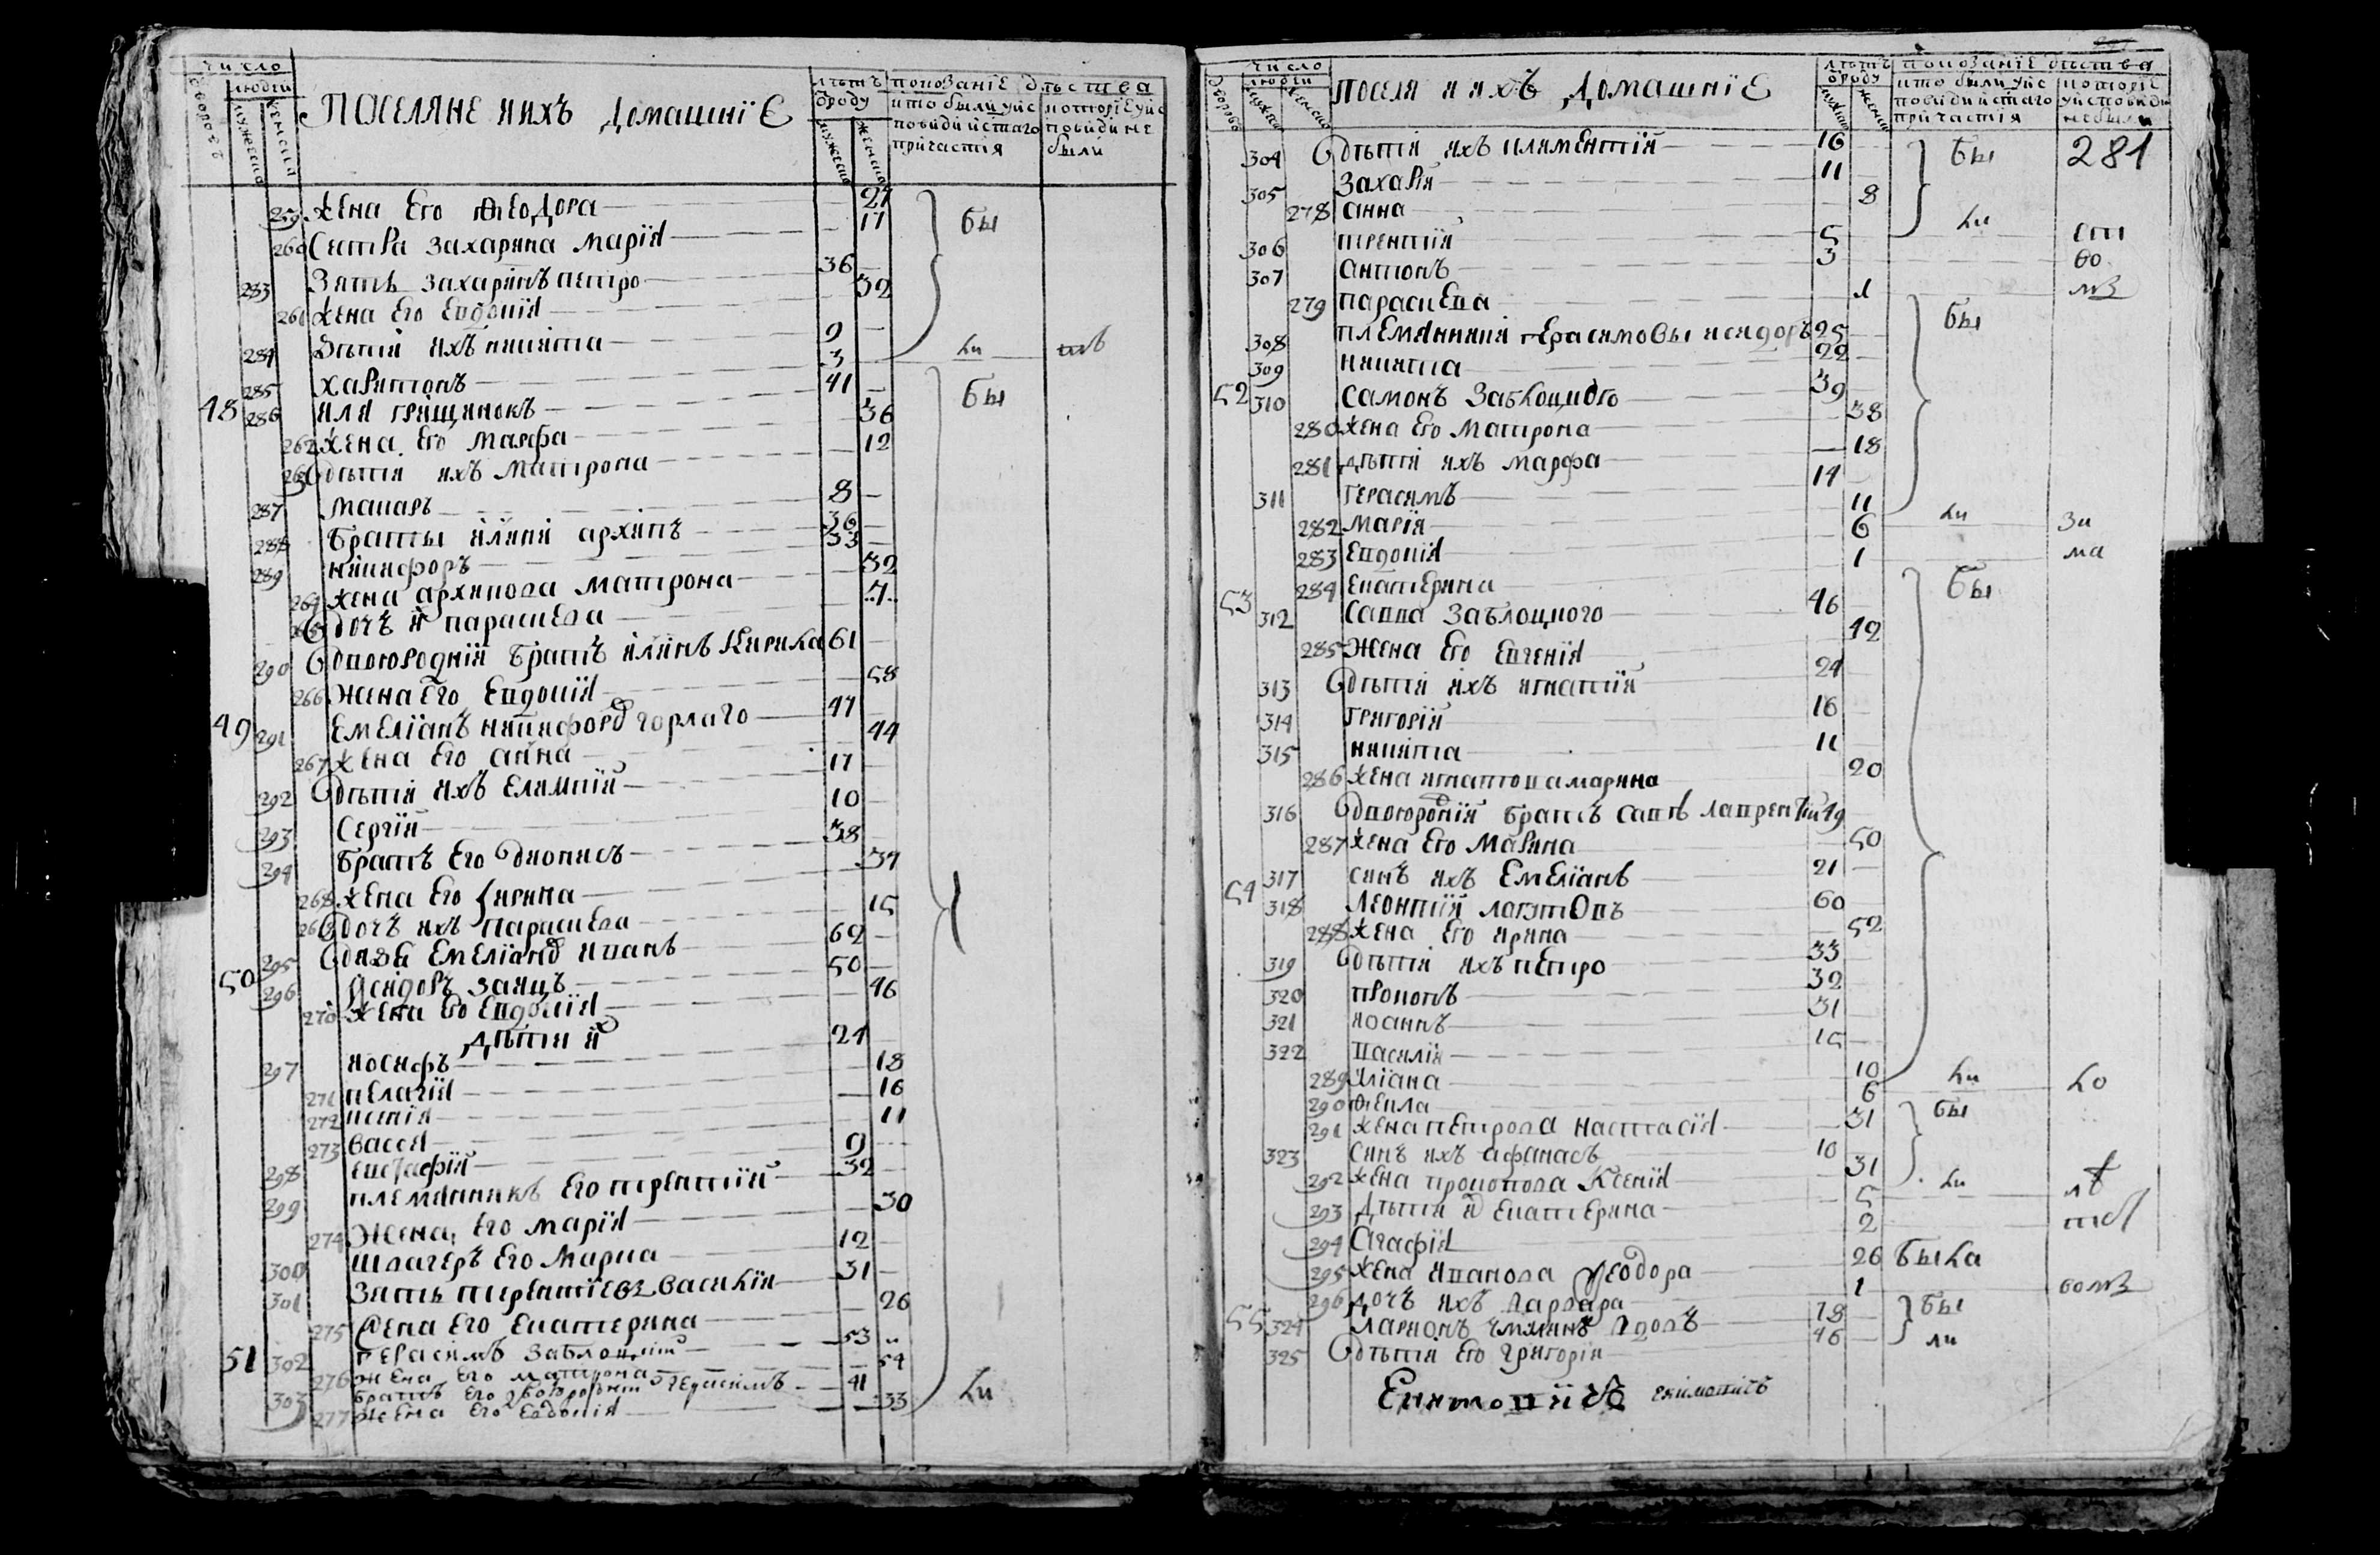 число
дворовъ
людей
мужеска
женска
Поселяне и ихъ домашніе
лѣтъ отроду
мужеска
женска
показаніе дѣйства
кто были у исповиди и стаго причастія
которіе у исповиди не были
259 жена Его Ѳеодора — 27
260 Сестра захарина Марія — 17 бы
283 Зять захаринъ петро — 36
261 жена Его Евдокія — 32
284 дѣти ихъ никита — 9
285 харитонъ — 3 ли
48 286 илія грищинокъ — 41 бы
262 жена Его Марфа — 36
263 дѣти ихъ Матрона — 12
287 макаръ — 8
288 Браты иліини архипъ — 36
289 никифоръ — 33
264 жена архипова Матрона — 32
265 дочь и параскева — 7
290 двоюродній братъ иліинъ Кирила 61
266 жена Его Евдокія — 58
49 291 Емеліанъ никифоро горлаго — 47
267 жена его анна — 44
292 дѣти ихъ Елимпій — 17
293 Сергій — 10
294 братъ Его дионисъ — 38
268 жена Его Ірина — 34
269 дочъ ихъ параскева — 15
295 дядя Емеліано иванъ — 62
50 296 Исидоръ заяцъ — 50
270 жена Его Евдокія — 46
дѣти и
297 иосифъ — 24
271 пелагія — 18
272 ксенія — 16
273 васся — 11
298 евстафій — 9
299 племянникъ Его терентій — 32
274 Жена Его Марія — 30
300 швагеръ Его Марка — 12
301 Зять терентіевъ василій — 31
275 жена Его Екатерина — 26
51 302 герасимъ заблоцкій — 53
276 жена Его матрона — 54
303 братъ Его двоюродній герасимъ — 41
277 жена Его Евдокія — 33 ли
число
дворовъ
людей
мужеска
женска
Поселя и ихъ домашніе
лѣтъ отроду
мужеска
женска
показаніе дѣйства
кто были у исповиди и стаго причастія
которіе у исповиди не были
304 дѣти ихъ климентій — 16 бы 281
305 захарій — 11
278 анна — 8 ли
306 терентій — 5
307 антонъ — 3
279 параскева — 1 мз
308 племянники герасимовы исидоръ 25 бы
309 никита — 22
52 310 Самонъ Заблоцкого — 39
280 жена Его Матрона — 38
281 дѣти ихъ марфа — 18
311 герасимъ — 14
282 марія — 11 ли
283 Евдокія — 6
284 екатерина — 1 ма
53 312 Савва заблоцкого — 46 бы
285 Жена Его Евгенія — 42
313 дѣти ихъ игнатій — 24
314 григорій — 16
315 никита — 11
286 жена игнатова марина — 20
316 двоюродній братъ савѣ лаврентій 49
287 жена Его Марина — 50
317 синъ ихъ Емеліанъ — 21
54 318 Леонтій — 60
288 жена Его ирина — 52
319 дѣти ихъ петро — 33
320 прокопъ — 32
321 иоаннъ — 31
322 василій — 15
289 Иліана — 10 ли
290 Ѳекла — 6
291 жена петрова настасія — 31 бы
323 синъ ихъ афанасъ — 10
292 жена прокопова Ксенія — 31 ли
293 дѣти и екатерина — 5
294 Агафія — 2
295 жена иванова Ѳеодора — 26 была
296 дочъ ихъ варвара — 1
55 324 ларионъ вдовъ — 78 бы
325 дѣти Его григорій — 46 ли